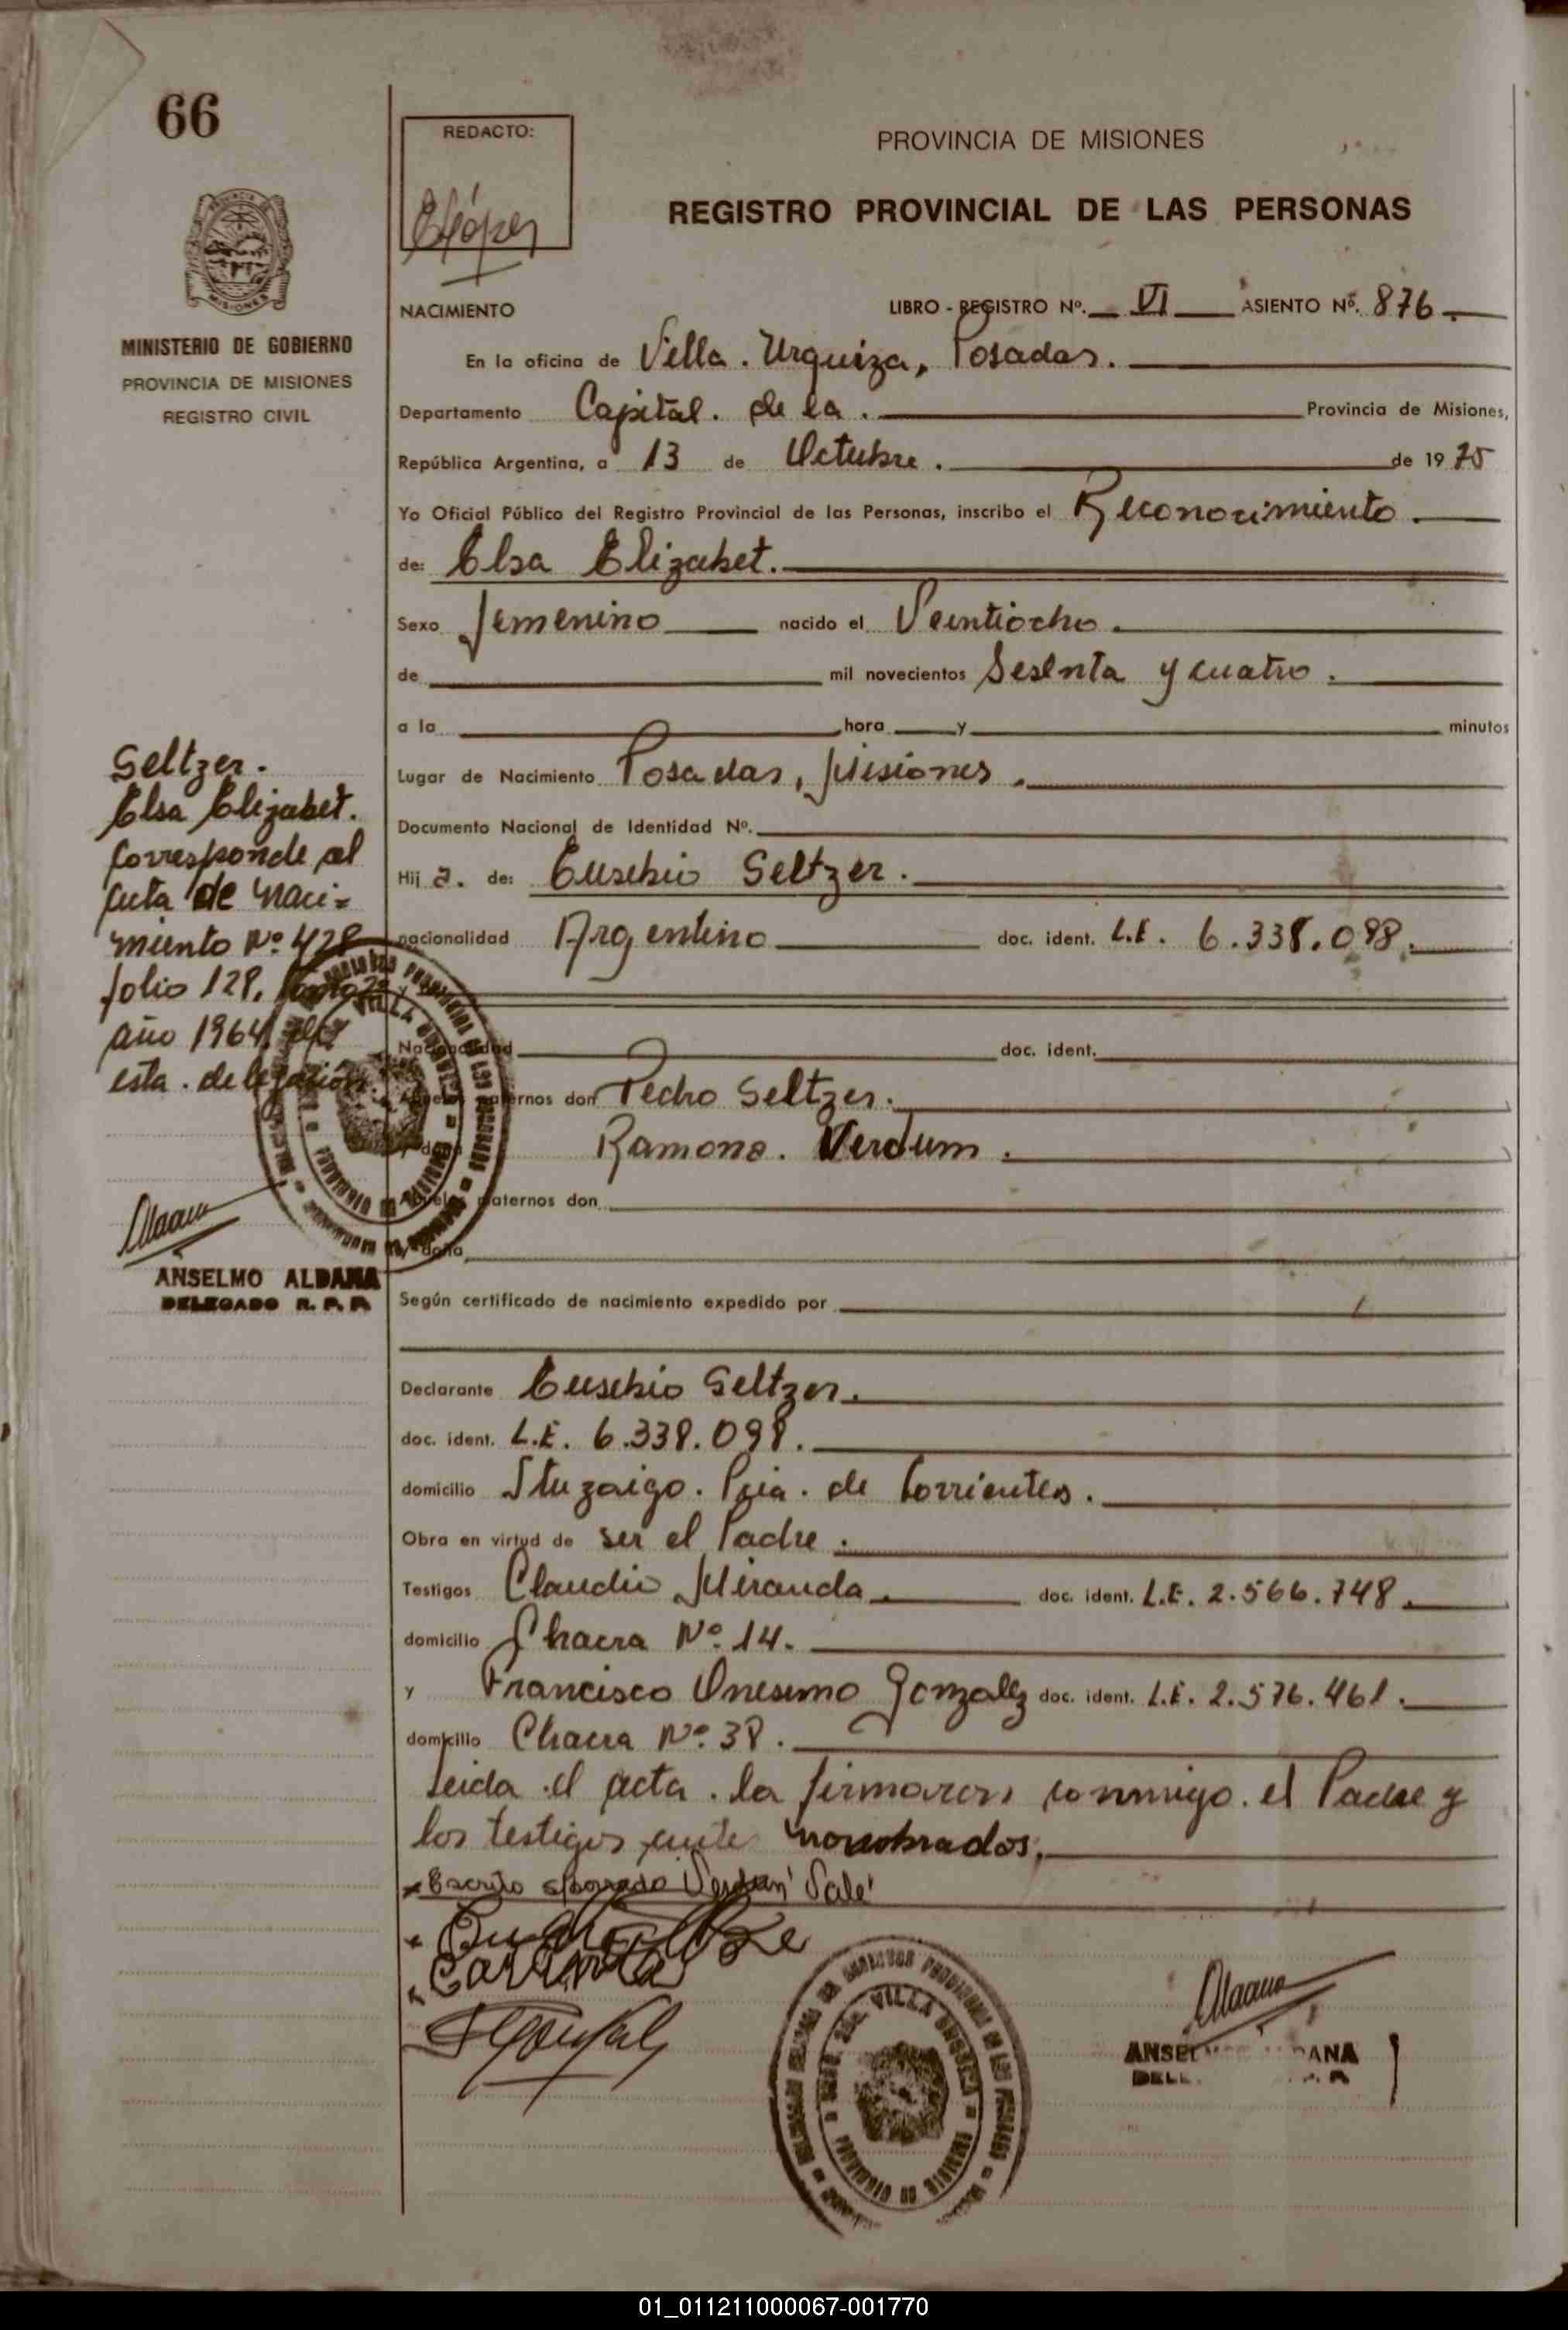 66
REDACTO:
PROVINCIA DE MISIONES
REGISTRO PROVINCIAL DE LAS PERSONAS
MINISTERIO DE GOBIERNO
PROVINCIA DE MISIONES
REGISTRO CIVIL
NACIMIENTO LIBRO - REGISTRO Nº. VI ASIENTO Nº. 876
En la oficina de Villa. Urquiza, Posadas.
Departamento Capital. de la. Provincia de Misiones,
República Argentina, a 13 de Octubre. de 1975
Yo Oficial Público del Registro Provincial de las Personas, inscribo el Reconocimiento.
de: Elsa Elizabet.
Sexo femenino nacido el Veintiocho.
de mil novecientos Sesenta y cuatro.
a la hora y minutos
Lugar de Nacimiento Posadas, Misiones.
Documento Nacional de Identidad Nº.
Hij a. de: Eusebio Seltzer.
nacionalidad Argentino doc. ident. L.E. 6.338.098.
Nacionalidad doc. ident.
Abuelos paternos don Pedro Seltzer.
y doña Ramona. Verdum.
Abuelos maternos don
y doña
Según certificado de nacimiento expedido por
Declarante Eusebio Seltzer.
doc. ident. L.E. 6.338.098.
domicilio Ituzaigo. Pcia. de Corrientes.
Obra en virtud de ser el Padre.
Testigos Claudio Miranda doc. ident. L.E. 2.566.748.
domicilio Chacra Nº 14.
y Francisco Onesimo Gonzalez doc. ident. L.E. 2.576.461.
domicilio Chacra Nº 38.
Leida el acta. la firmaron conmigo. el Padre y
los testigos ante nombrados.
Escrito s/borrado Verdum Vale
Seltzer.
Elsa Elizabet.
Corresponde al
acta de naci=
miento Nº 428
folio 128, tomo 2º
año 1964 de
esta. delegación.
ANSELMO ALDANA
DELEGADO R. P. P.
VILLA URQUIZA
01_011211000067-001770